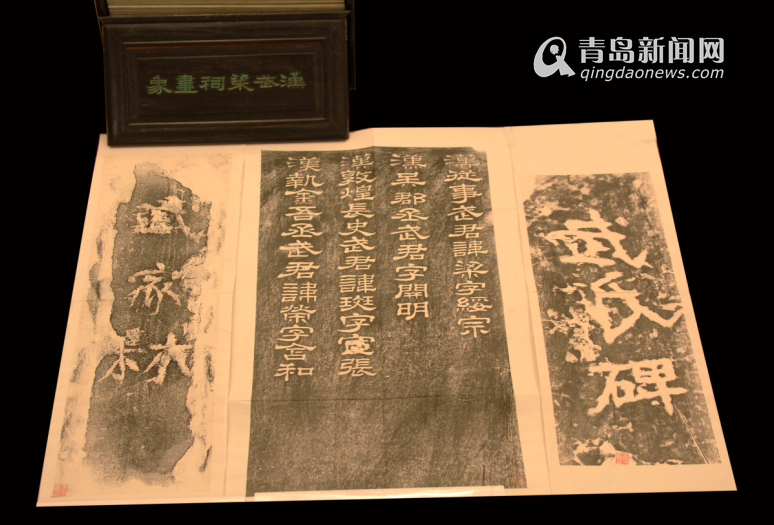 青岛新闻网
qingdaonews.com
漢武梁祠畫象
武氏碑
漢從事武君諱梁字綏宗
漢吳郡丞武君字開明
漢敦煌長史武君諱斑字宣張
漢執金吾丞武君諱榮字含和
武家林